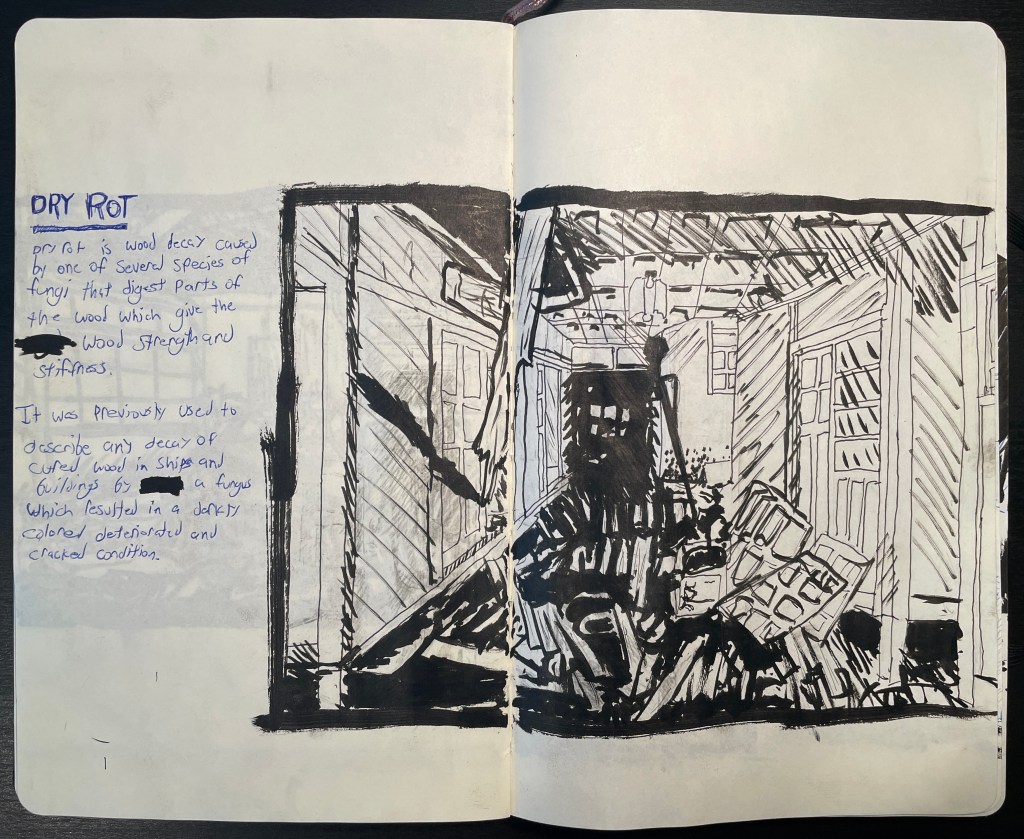 DRY ROT
Dry rot is wood decay caused
by one of several species of
fungi that digest parts of
the wood which give the
wood strength and
stiffness.
It was previously used to
describe any decay of
cured wood in ships and
buildings by a fungus
which resulted in a darkly
colored deteriorated and
cracked condition.